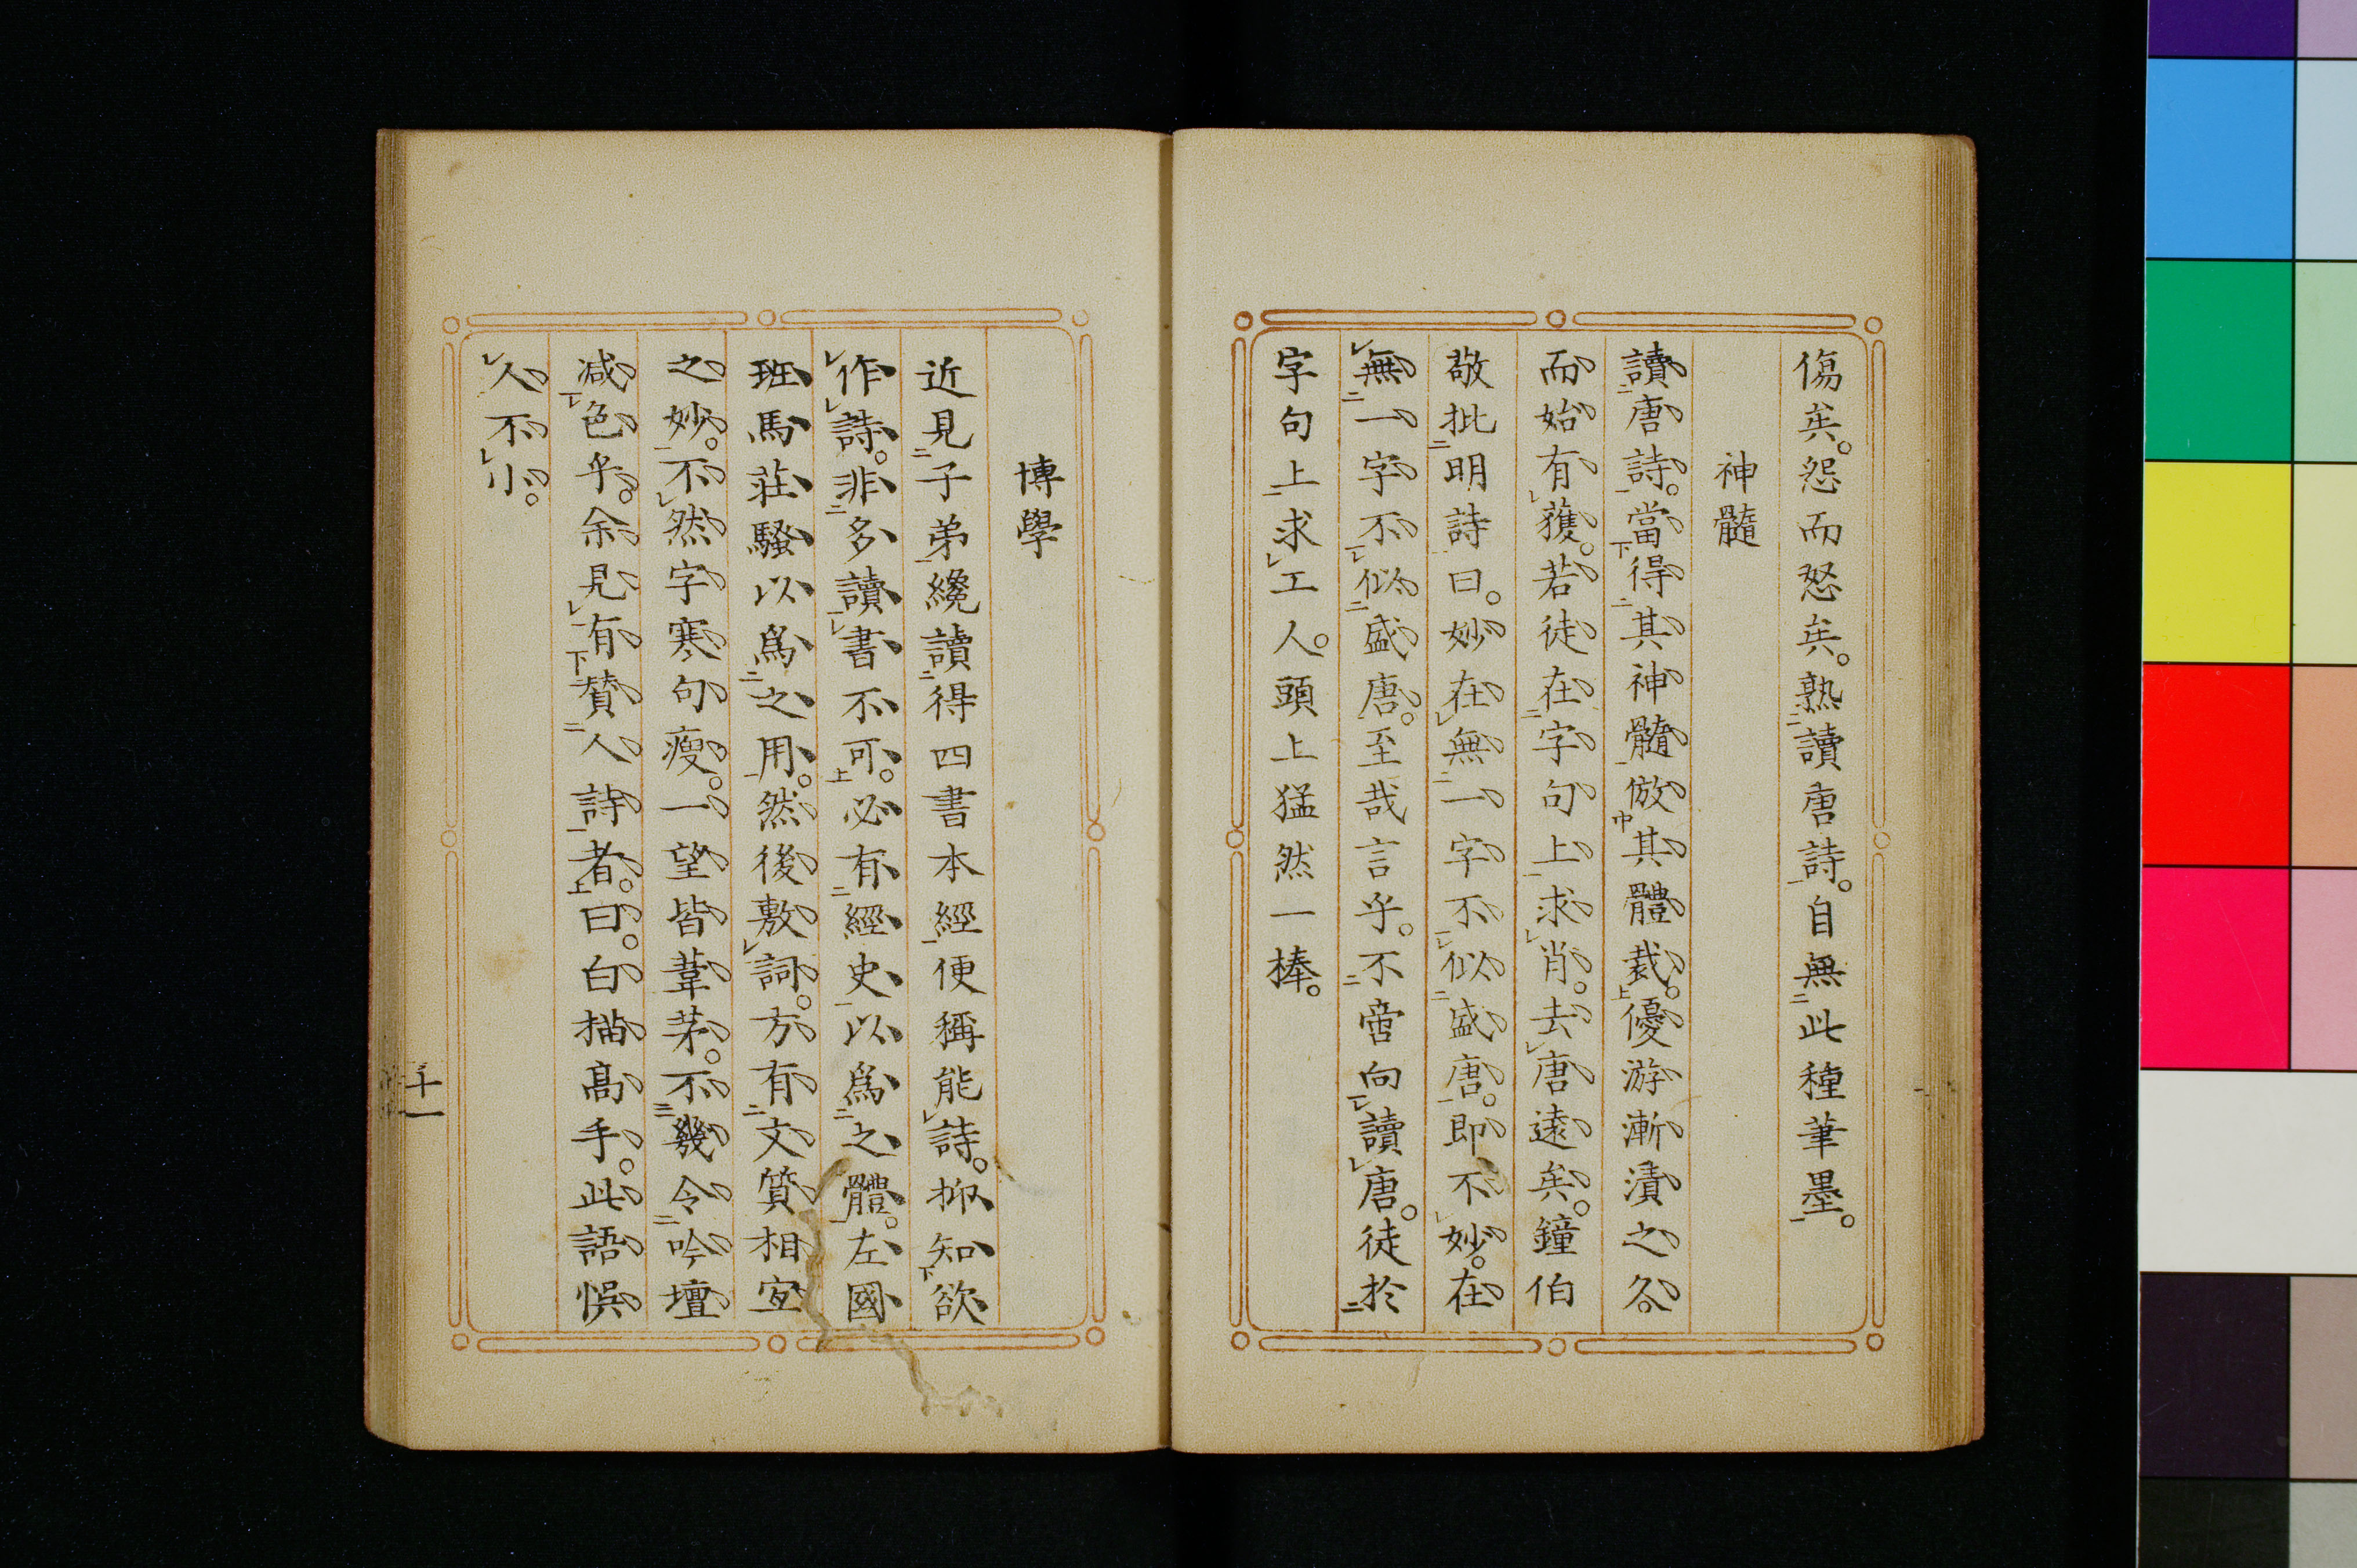 傷矣。怨而怒矣。熟讀唐詩。自無此種筆墨。
神髓
讀唐詩。當得其神髓倣其體裁。優游漸漬之久。
而始有獲。若徒在字句上求肖。去唐遠矣。鐘伯
敬批明詩曰。妙在無一字不似盛唐。即不妙。在
無一字不似盛唐。至哉言乎。不啻向讀唐。徒於
字句上求工人。頭上猛然一棒。
博學
近見子弟纔讀得四書本經便稱能詩。抑知欲
作詩。非多讀書不可。必有經史以爲之體。左國
班馬莊騷以爲之用。然後敷詞。方有文質相宜
之妙。不然字寒句瘦。一望皆葦茅。不幾令吟壇
减色乎。余見有賛人詩者。曰。白描高手。此語悞
人不小。
十一